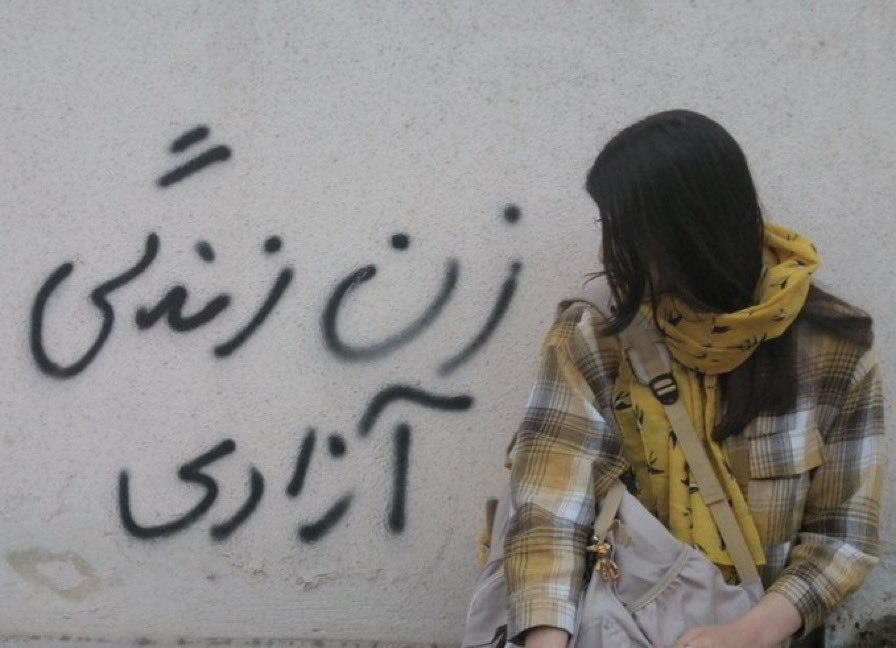 زن زندگی
آزادی